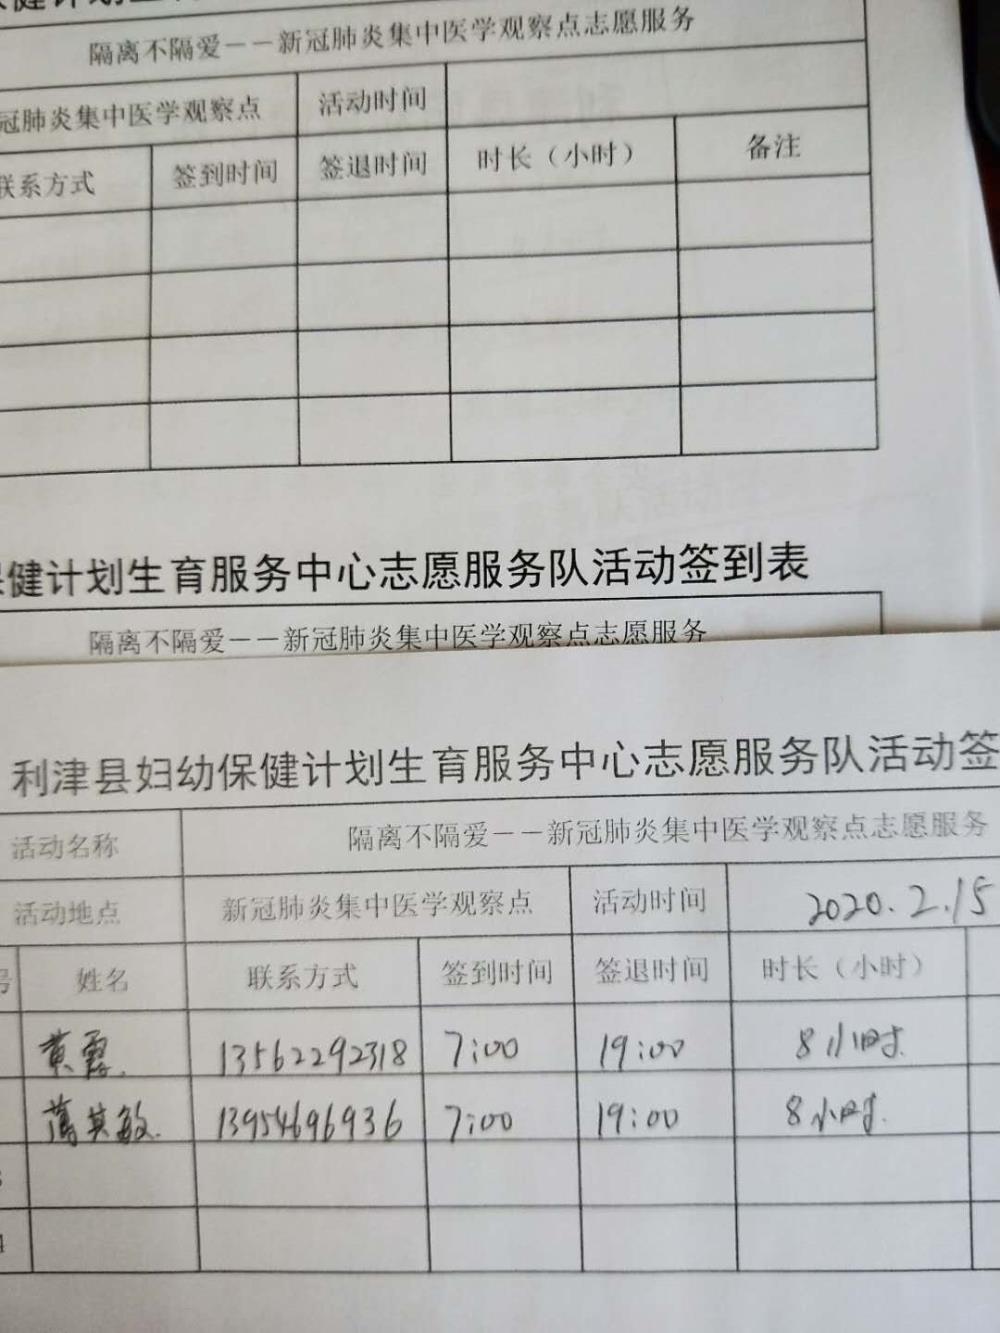 隔离不隔爱——新冠肺炎集中医学观察点志愿服务
冠肺炎集中医学观察点 活动时间
联系方式 签到时间 签退时间 时长（小时） 备注
健计划生育服务中心志愿服务队活动签到表
隔离不隔爱——新冠肺炎集中医学观察点志愿服务
利津县妇幼保健计划生育服务中心志愿服务队活动签
活动名称 隔离不隔爱——新冠肺炎集中医学观察点志愿服务
活动地点 新冠肺炎集中医学观察点 活动时间 2020.2.15
号 姓名 联系方式 签到时间 签退时间 时长（小时）
黄露 13562292318 7:00 19:00 8小时.
其敏 13954696936 7:00 19:00 8小时.
4